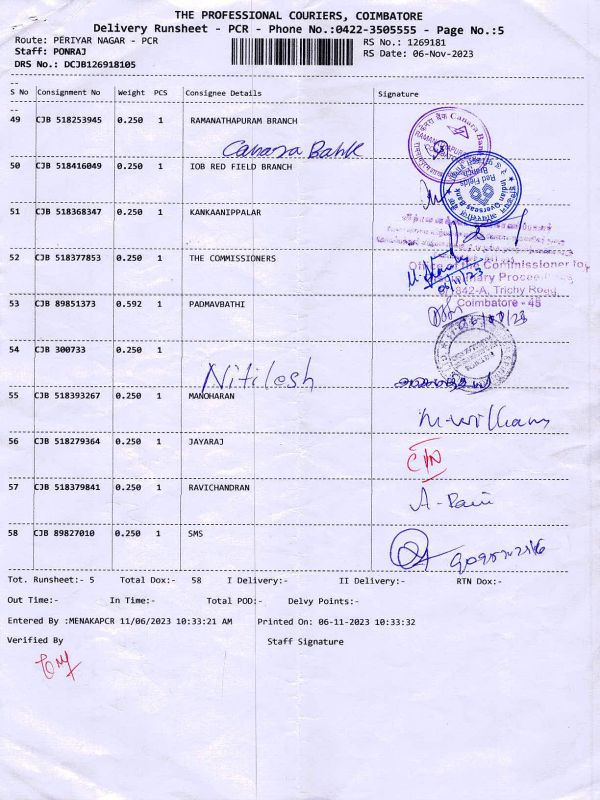 THE PROFESSIONAL COURIERS, COIMBATORE
Delivery Runsheet - PCR - Phone No.:0422-3505555 - Page No.:5
Route: PERIYAR NAGAR - PCR
RS No.: 1269181
Staff: PONRAJ
RS Date: 06-Nov-2023
DRS No.: DCJB126918105
S No Consignment No Weight PCS Consignee Details Signature
49 CJB 518253945 0.250 1 RAMANATHAPURAM BRANCH
Canara Bank
Canara Bank
50 CJB 518416049 0.250 1 IOB RED FIELD BRANCH
Indian Overseas Bank
Red Fields
51 CJB 518368347 0.250 1 KANKAANIPPALAR
52 CJB 518377853 0.250 1 THE COMMISSIONERS
Office of the Commissioner for
Proceedings
842-A, Trichy Road
Coimbatore - 45
06/11/23
53 CJB 89851373 0.592 1 PADMAVBATHI
54 CJB 300733 0.250 1
Nitilesh
55 CJB 518393267 0.250 1 MANOHARAN
M. Williams
56 CJB 518279364 0.250 1 JAYARAJ
57 CJB 518379841 0.250 1 RAVICHANDRAN
A. Ravi
58 CJB 89827010 0.250 1 SMS
Tot. Runsheet:- 5 Total Dox:- 58 I Delivery:- II Delivery:- RTN Dox:-
Out Time:- In Time:- Total POD:- Delvy Points:-
Entered By :MENAKAPCR 11/06/2023 10:33:21 AM Printed On: 06-11-2023 10:33:32
Verified By Staff Signature